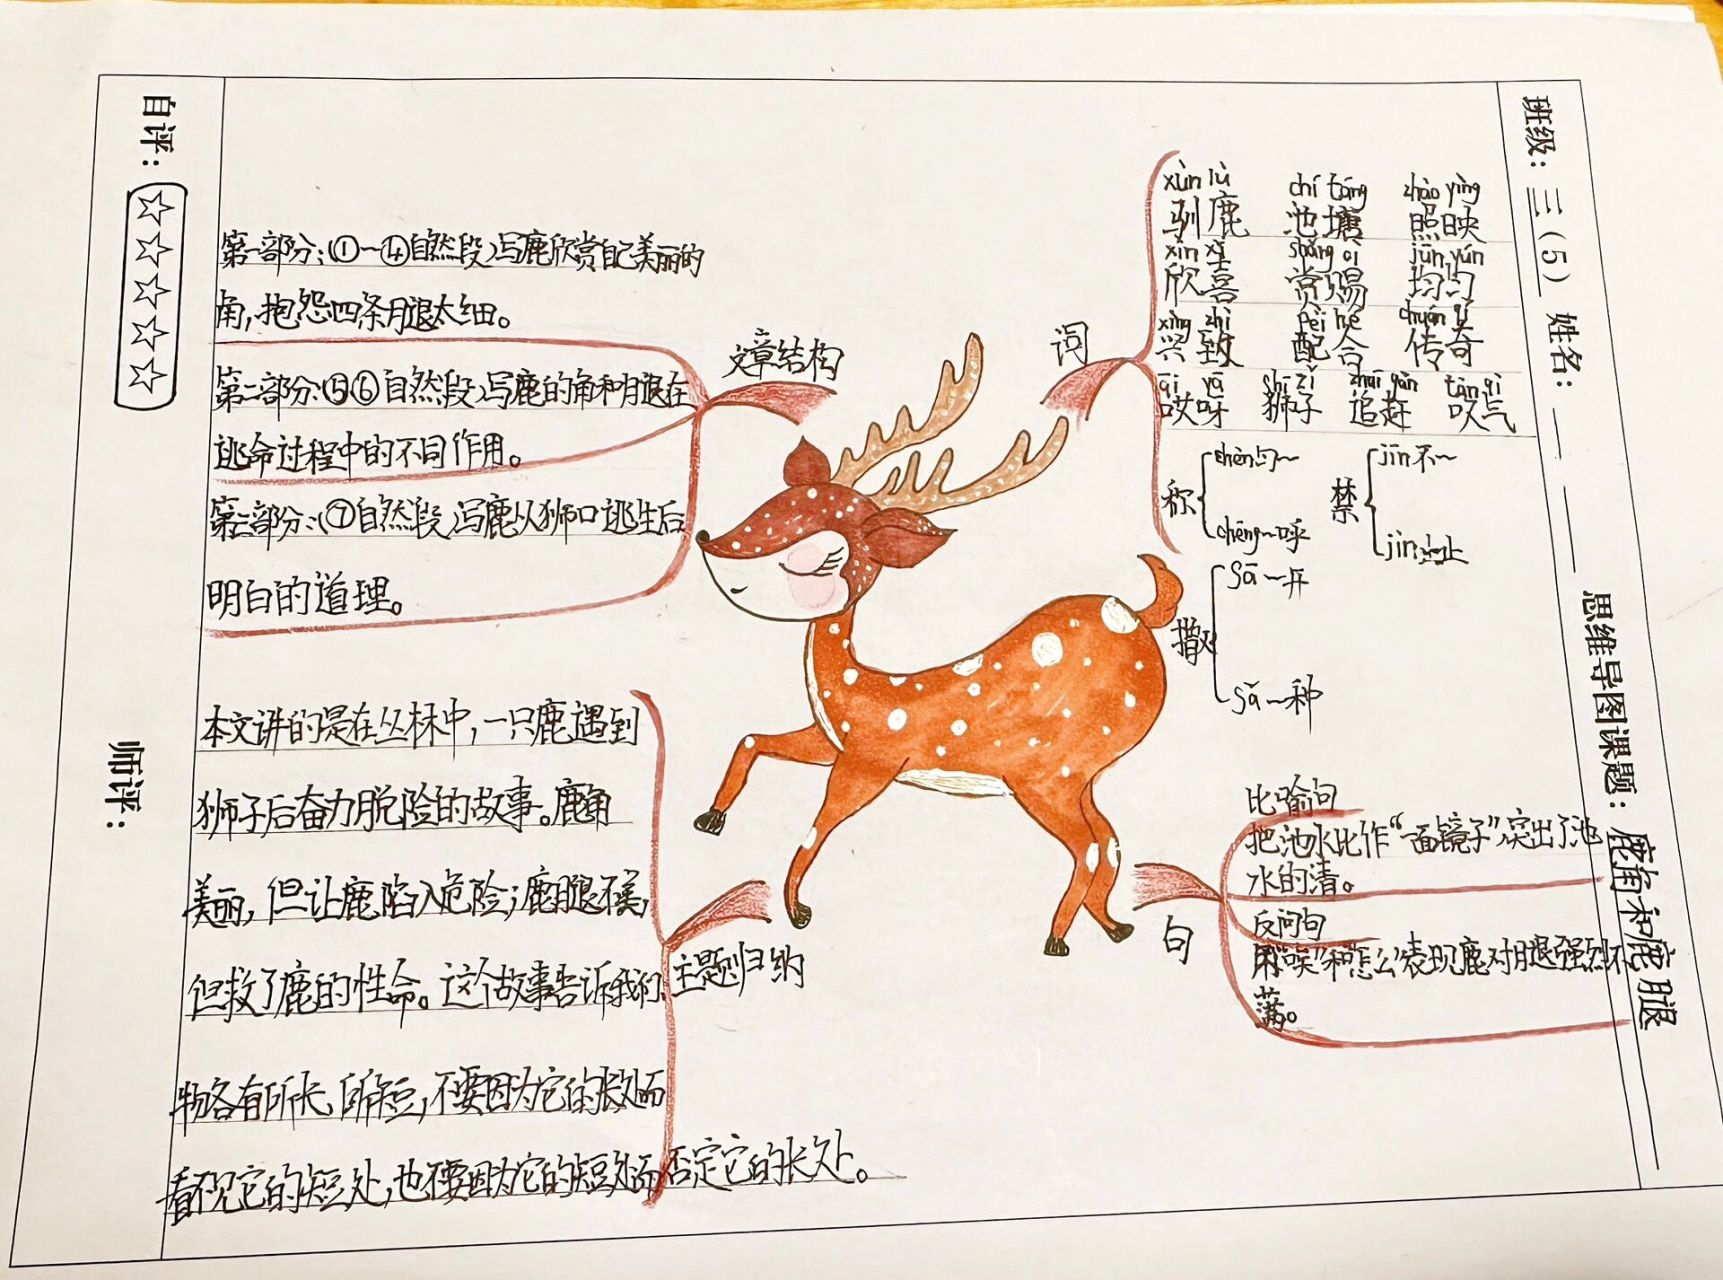 班级：三（5）姓名：
思维导图课题：鹿角和鹿腿
自评：☆☆☆☆☆
师评：
文章结构
第一部分：（①～④自然段）写鹿欣赏自己美丽的
角，抱怨四条腿太细。
第二部分：（⑤⑥自然段）写鹿的角和腿在
逃命过程中的不同作用。
第三部分：（⑦自然段）写鹿从狮口逃生后
明白的道理。
主题归纳
本文讲的是在丛林中，一只鹿遇到
狮子后奋力脱险的故事。鹿角
美丽，但让鹿陷入危险；鹿腿不美，
但救了鹿的性命。这个故事告诉我们：
物各有所长、所短，不要因为它的长处而
看不见它的短处，也不要因为它的短处而否定它的长处。
词
xùn lù chí táng zhào yìng
驯鹿 池塘 照映
xīn xǐ shǎng cì jūn yún
欣喜 赏赐 均匀
xìng zhì pèi hé chuán qí
兴致 配合 传奇
āi yā shī zi zhuī gǎn tàn qì
哎呀 狮子 追赶 叹气
称 chèn 匀～ chēng ～呼
禁 jīn 不～ jìn ～止
撒 sā ～开 sǎ ～种
句
比喻句
把池水比作“一面镜子”，突出了池
水的清。
反问句
用“唉”和“怎么”表现鹿对腿强烈不
满。